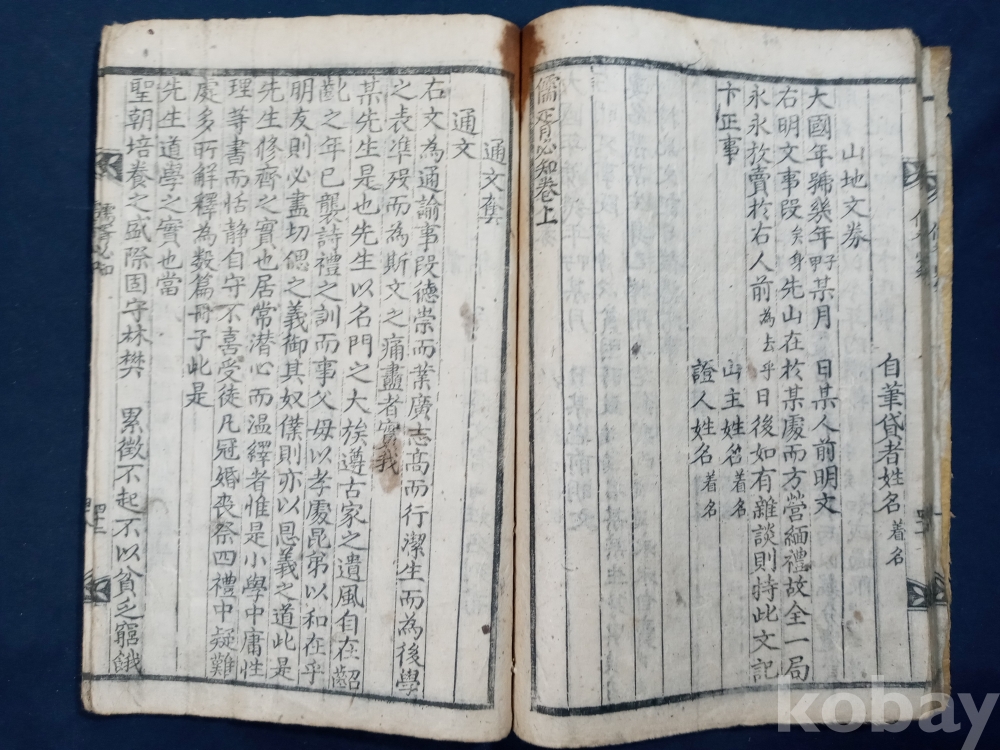 自筆貸者姓名 着名
山地文券
大國年號幾年甲子某月 日某人前明文
右明文事段矣身先山在於某處而方營緬禮故全一局
永永放賣於右人前為去乎日後如有雜談則持此文記
卞正事
山主姓名 着名
證人姓名 着名
儒胥必知卷上
通文套
通文
右文為通諭事段德崇而業廣志高而行潔生而為後學
之表準歿而為斯文之痛盡者實我
某先生是也先生以名門之大族遵古家之遺風自在齠
齔之年已襲詩禮之訓而事父母以孝處昆弟以和在乎
朋友則必盡切偲之義御其奴僕則亦以恩義之道此是
先生修齊之實也居常潜心而温繹者惟是小學中庸性
理等書而恬静自守不喜受徒凡冠婚喪祭四禮中疑難
處多所解釋為数篇冊子此是
先生道學之實也當
聖朝培養之盛除固守林樊 累徵不起不以貧乏窮餓
儒胥必知
四十二
kobay